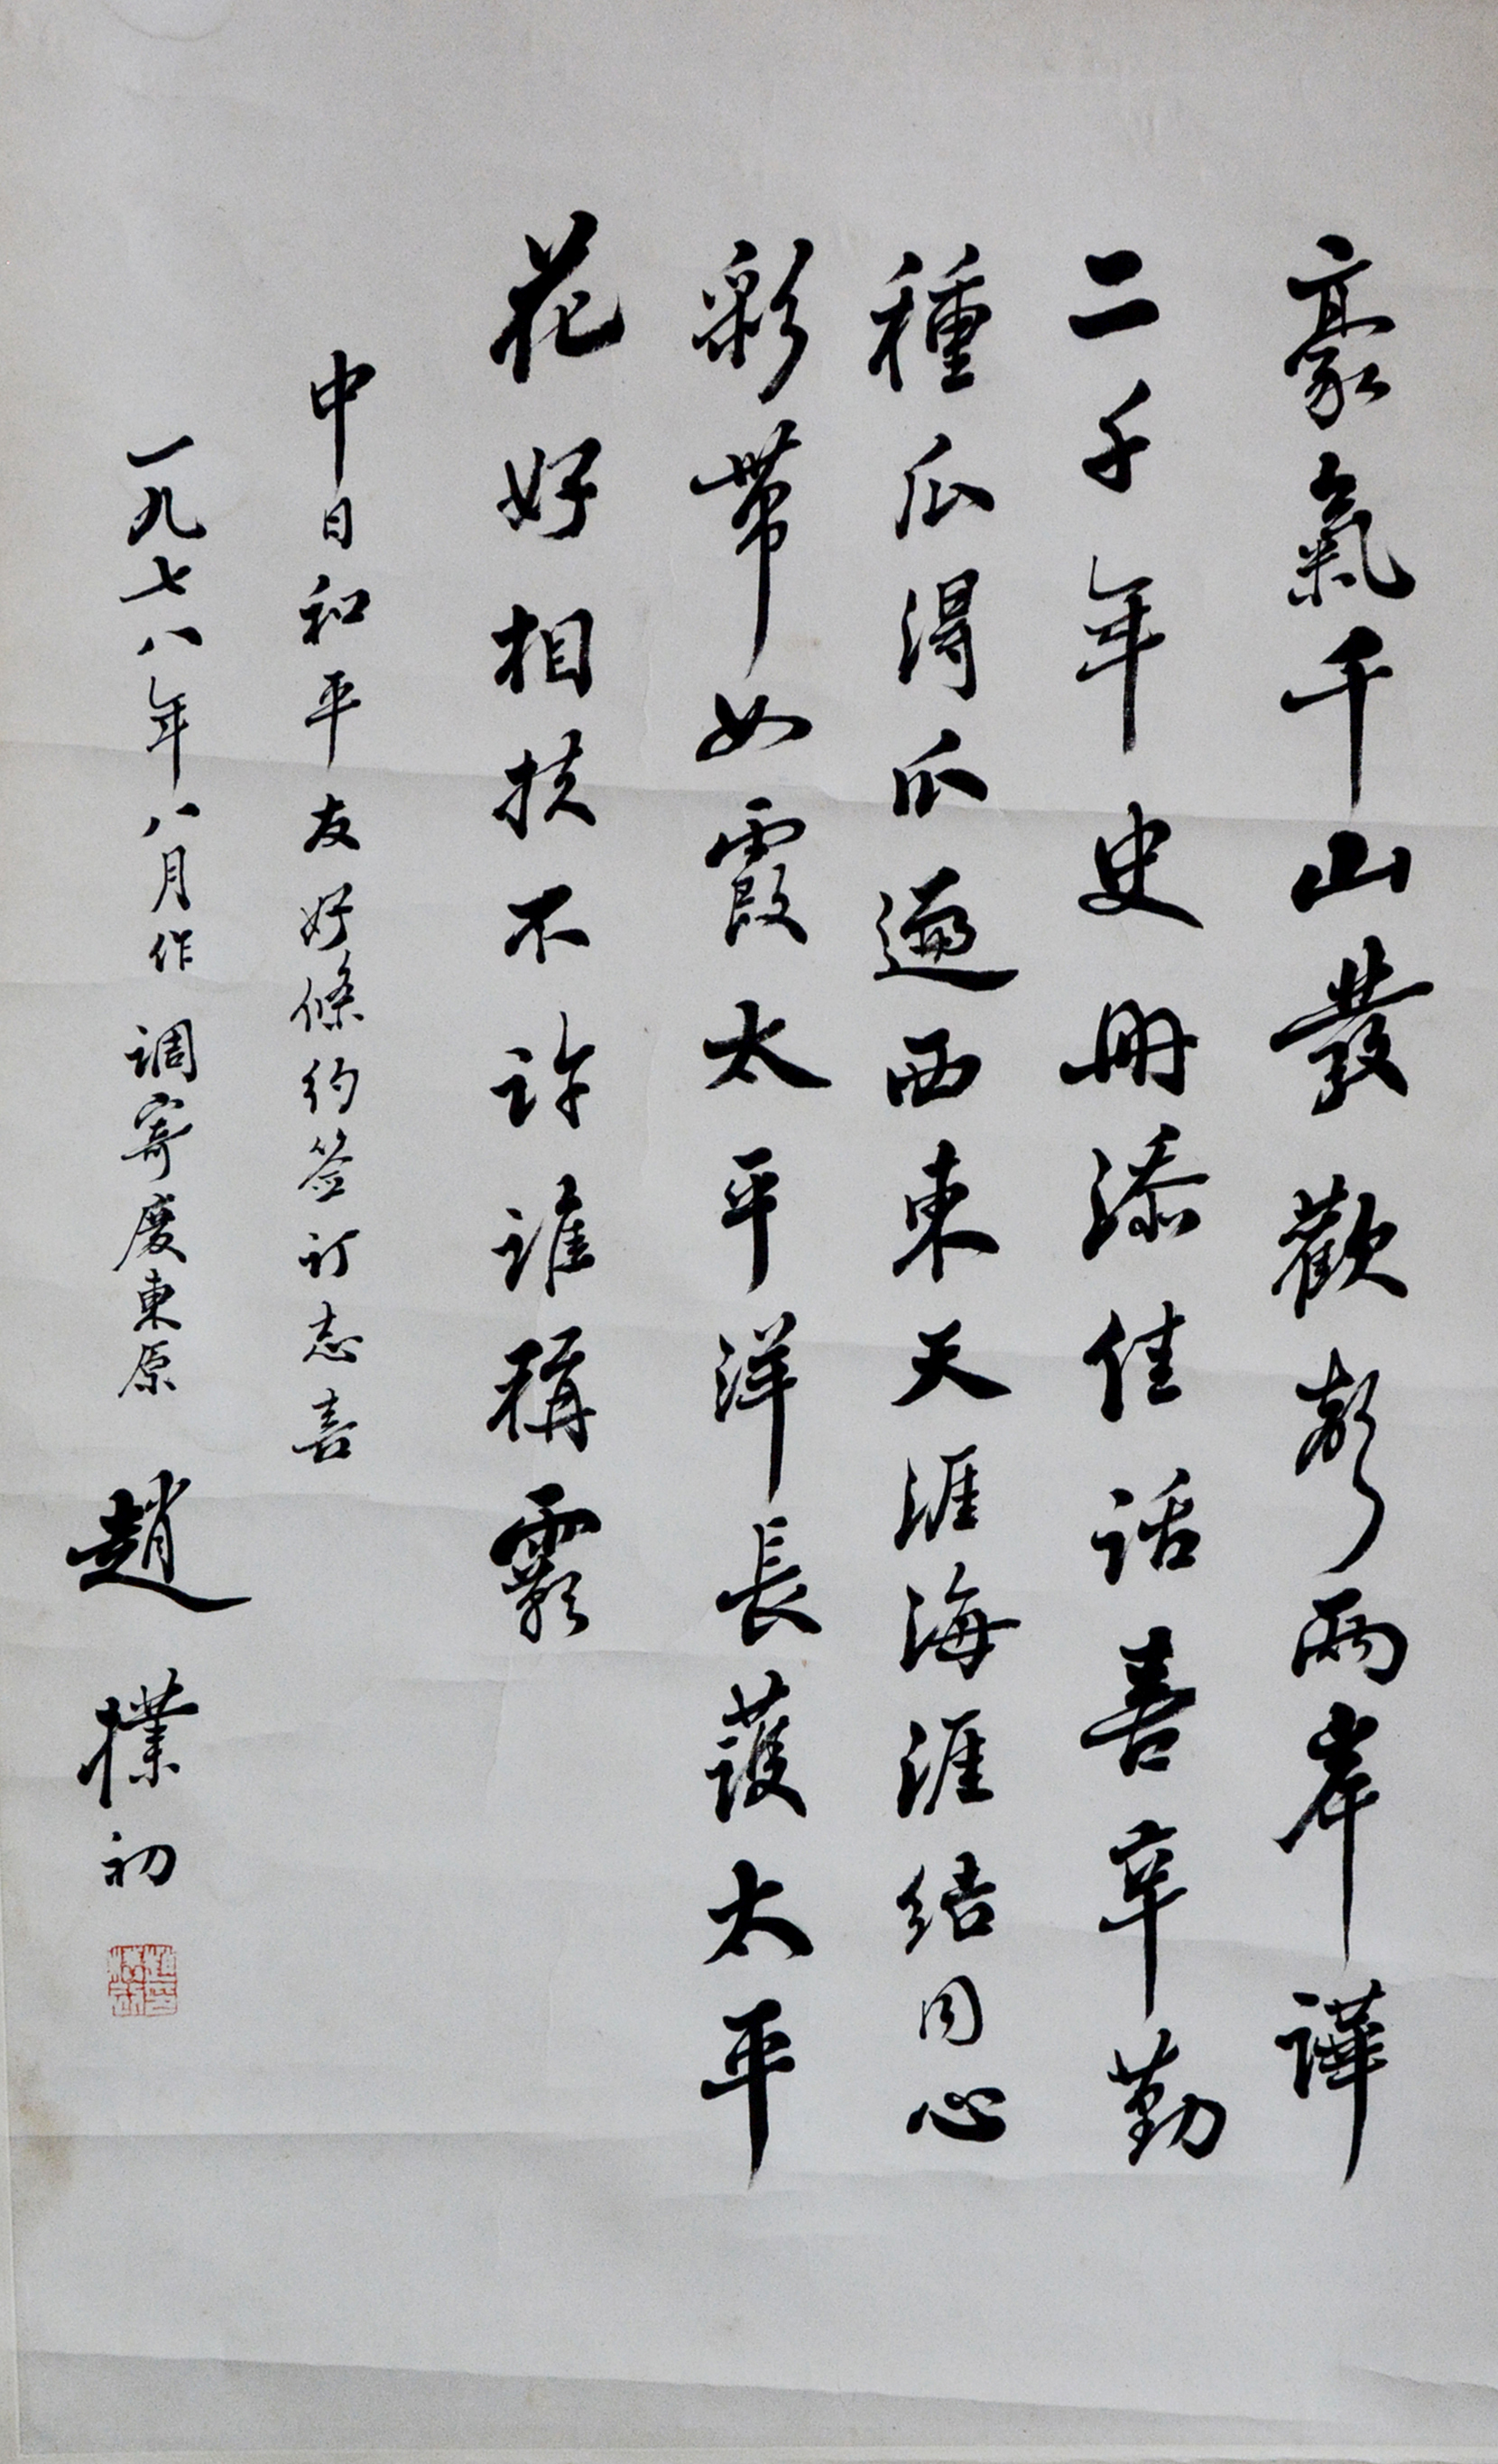 豪氣千山發歡聲兩岸譁
二千年史册添佳話喜辛勤
種瓜得瓜遍西東天涯海涯結同心
彩帶如霞太平洋長護太平
花好相扶不許誰稱霸
中日和平友好條約签订志喜
一九七八年八月作 调寄慶東原 趙樸初